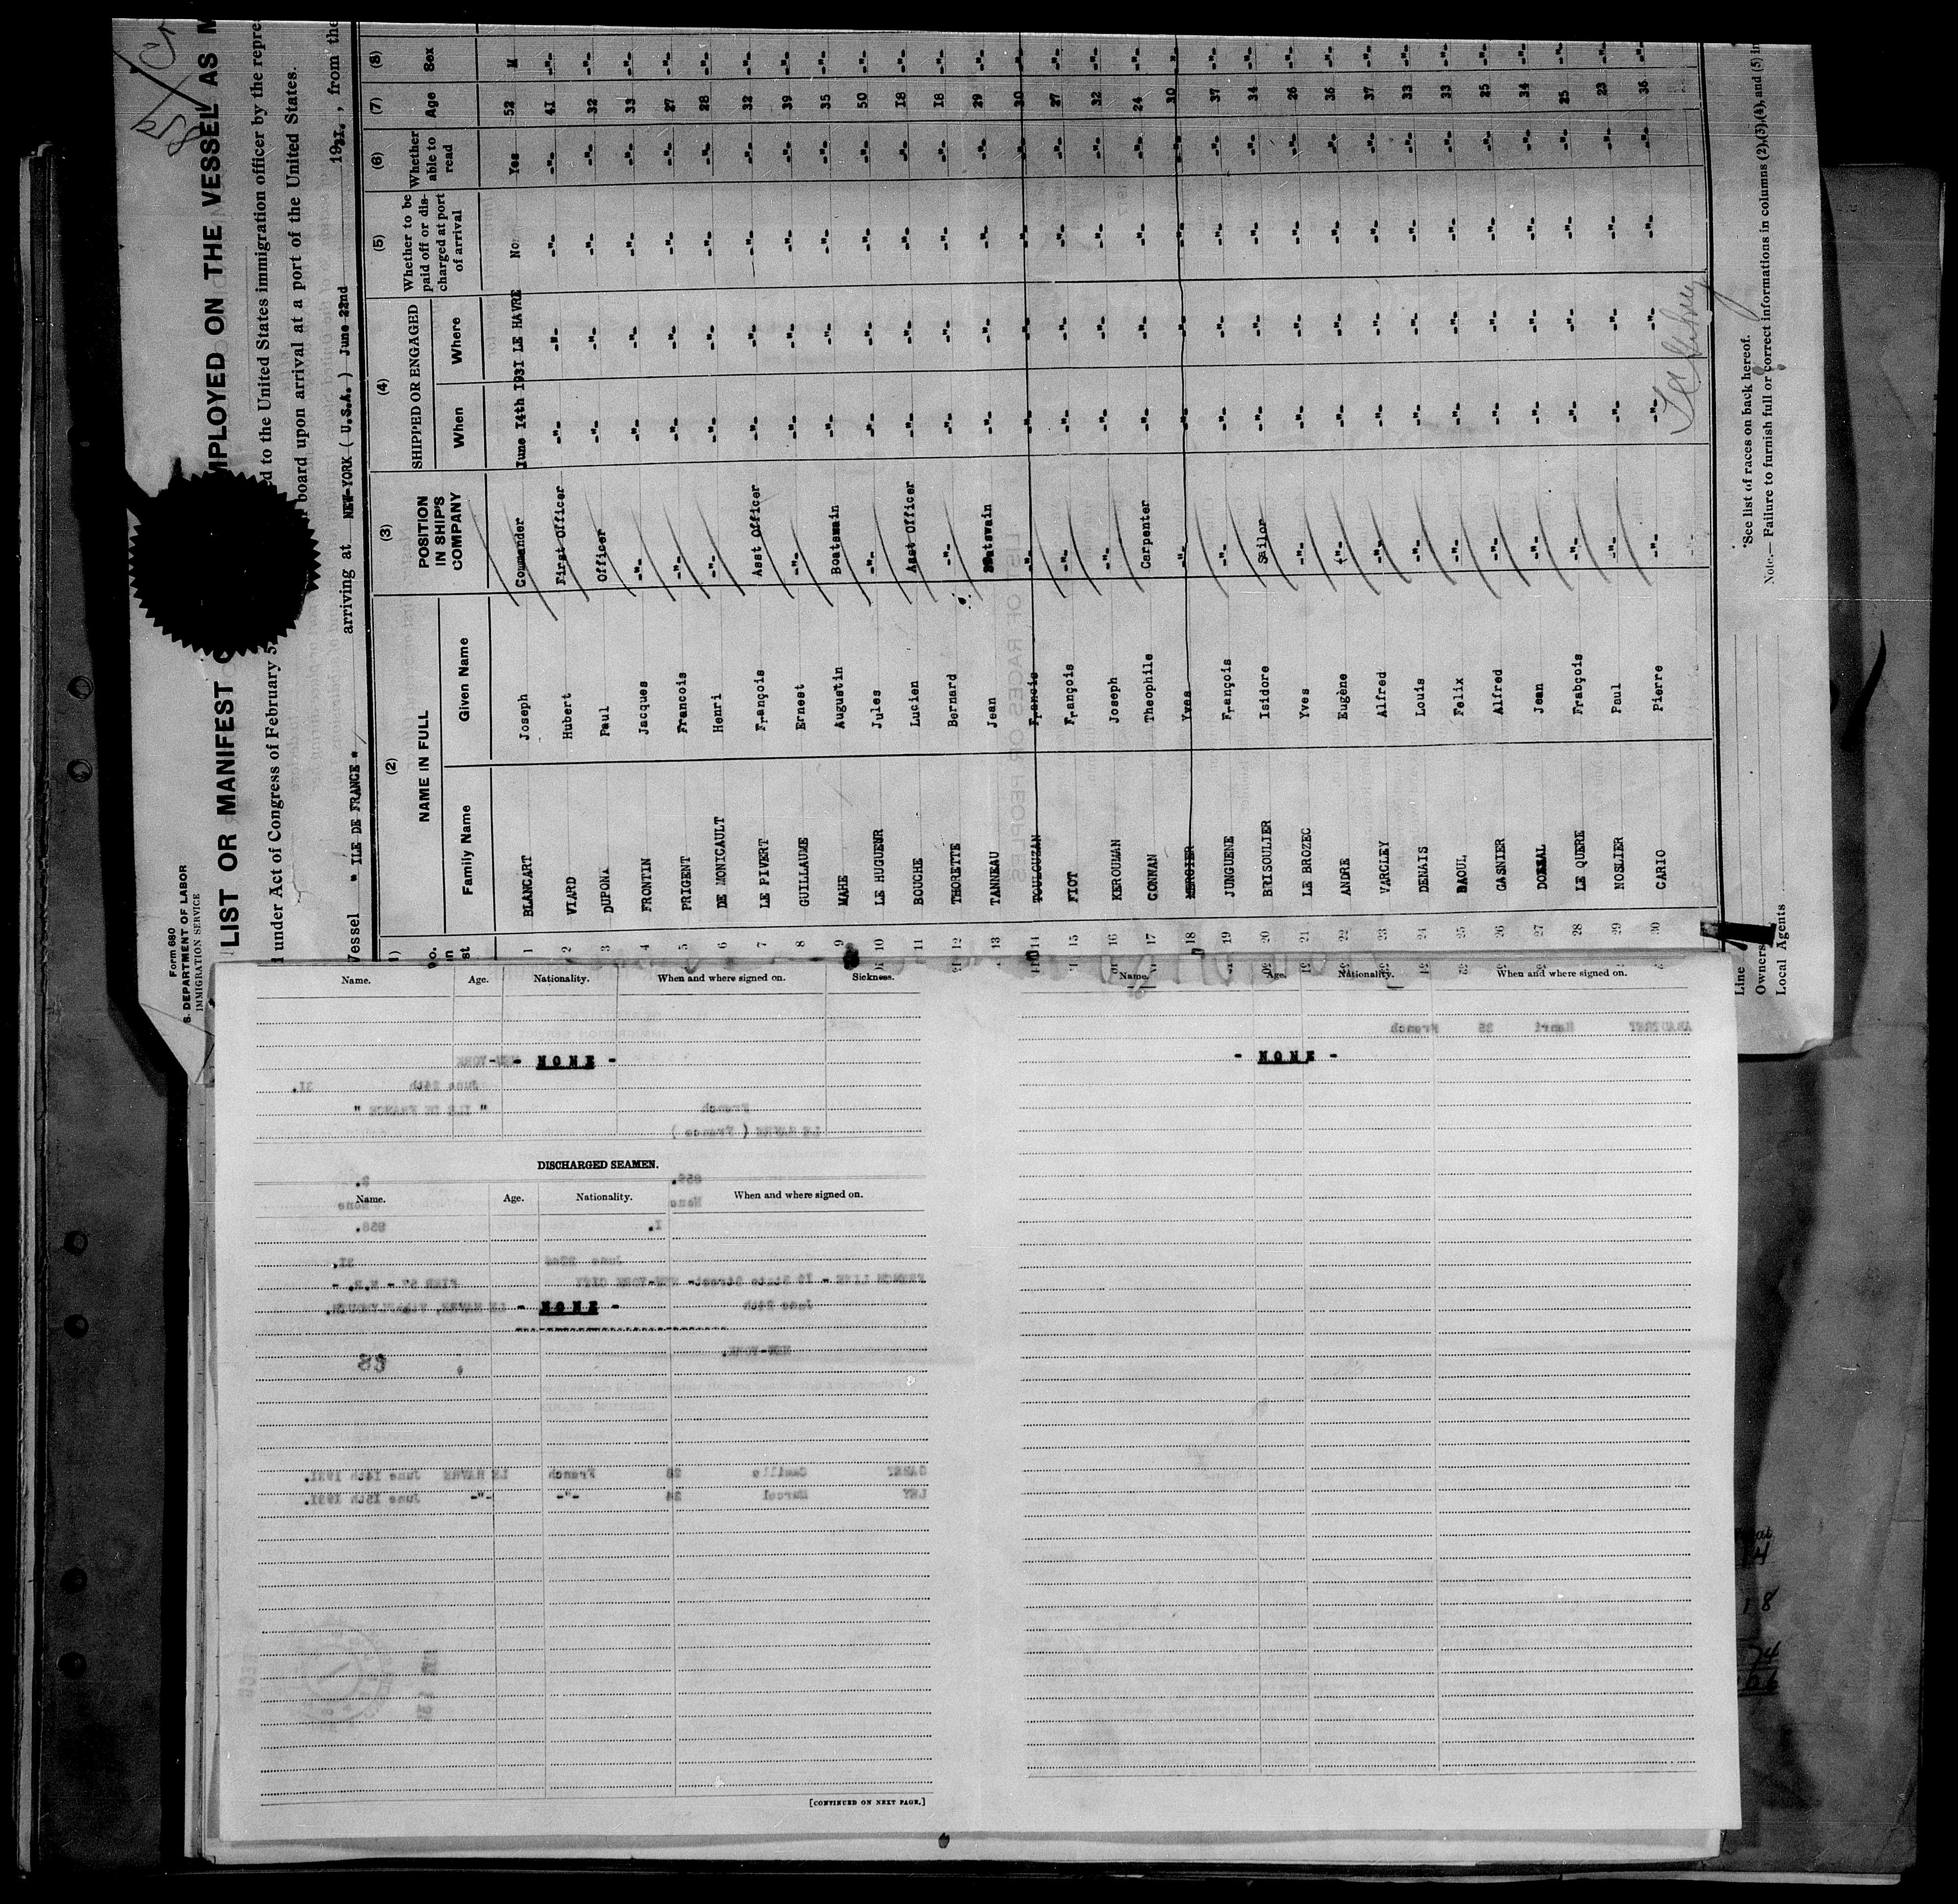 Form 680
S. DEPARTMENT OF LABOR
IMMIGRATION SERVICE
LIST OR MANIFEST
MPLOYED ON THE VESSEL AS M
under Act of Congress of February 5,
d to the United States immigration officer by the repre
board upon arrival at a port of the United States.
Vessel " ILE DE FRANCE " arriving at NEW-YORK ( U.S.A. ) June 22nd 1931. , from the
(2) (3) (4) (5) (6) (7) (8)
NAME IN FULL POSITION IN SHIP'S COMPANY SHIPPED OR ENGAGED Whether to be paid off or discharged at port of arrival Whether able to read Age Sex
Family Name Given Name When Where
1 BLANCART Joseph Commander June 14th 1931 LE HAVRE No Yes 52 M
2 VIARD Hubert First Officer -"- -"- -"- -"- 41 -"-
3 DUPONT Paul Officer -"- -"- -"- -"- 32 -"-
4 FRONTIN Jacques -"- -"- -"- -"- -"- 33 -"-
5 PRIGENT Francois -"- -"- -"- -"- -"- 27 -"-
6 DE MONICAULT Henri -"- -"- -"- -"- -"- 28 -"-
7 LE PIVERT François Asst Officer -"- -"- -"- -"- 32 -"-
8 GUILLAUME Ernest -"- -"- -"- -"- -"- 39 -"-
9 MAHE Augustin Boatswain -"- -"- -"- -"- 35 -"-
10 LE HUGUEUR Jules -"- -"- -"- -"- -"- 50 -"-
11 BOUCHE Lucien Asst Officer -"- -"- -"- -"- 18 -"-
12 THORETTE Bernard -"- -"- -"- -"- -"- 18 -"-
13 TANNEAU Jean Boatswain -"- -"- -"- -"- 29 -"-
14 TOULOUZAN Francis -"- -"- -"- -"- -"- 30 -"-
15 FIOT François -"- -"- -"- -"- -"- 27 -"-
16 KEROUMAN Joseph -"- -"- -"- -"- -"- 32 -"-
17 CONNAN Theophile Carpenter -"- -"- -"- -"- 24 -"-
18 MERGIER Yves -"- -"- -"- -"- -"- 30 -"-
19 JUNGUENE François -"- -"- -"- -"- -"- 37 -"-
20 BRISOULIER Isidore Sailor -"- -"- -"- -"- 34 -"-
21 LE BROZEC Yves -"- -"- -"- -"- -"- 26 -"-
22 ANDRE Eugène -"- -"- -"- -"- -"- 36 -"-
23 VARCLEY Alfred -"- -"- -"- -"- -"- 37 -"-
24 DENAIS Louis -"- -"- -"- -"- -"- 33 -"-
25 DAOUL Felix -"- -"- -"- -"- -"- 33 -"-
26 GASNIER Alfred -"- -"- -"- -"- -"- 25 -"-
27 Jean -"- -"- -"- -"- -"- 34 -"-
28 LE QUERE Frabçois -"- -"- -"- -"- -"- 25 -"-
29 NOSLIER Paul -"- -"- -"- -"- -"- 23 -"-
30 CARIO Pierre -"- -"- -"- -"- -"- 36 -"-
*See list of races on back hereof.
Note.— Failure to furnish full or correct informations in columns (2),(3),(4), and (5) in
Line
Owners
Local Agents
Name. Age. Nationality. When and where signed on. Sickness.
- NONE -
DISCHARGED SEAMEN.
Name. Age. Nationality. When and where signed on.
- NONE -
[CONTINUED ON NEXT PAGE.]
Name. Age. Nationality. When and where signed on.
- NONE -